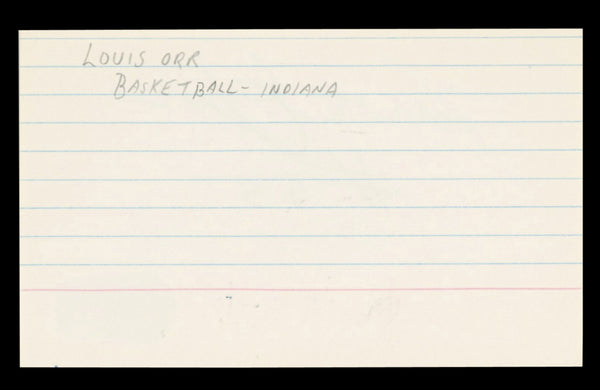 LOUIS ORR
BASKETBALL- INDIANA